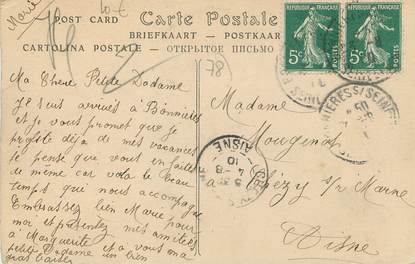 Marie
POST CARD
Carte Postale
BRIEFKAART — POSTKAART
CARTOLINA POSTALE — ОТКРЫТОЕ ПИСЬМО
RÉPUBLIQUE FRANÇAISE
5c
RÉPUBLIQUE FRANÇAISE
5c
(78)
Ma Chère Petite Dodame
Je suis arrivés à Bonnières
et je vous promet que je
profite déjà de mes vacances
je pense que vous en faites
de même car vola le beau
temps qui nous accompagne
Embrassez bien Marie pour
moi et présentez mes amitiées
à Marguerite et a vous ma
petite Dodame un bien
gros baiser
Madame
Mougenot
Chézy s/r Marne
Aisne
BONNIERES S/SEINE
AISNE
5
4-8
10